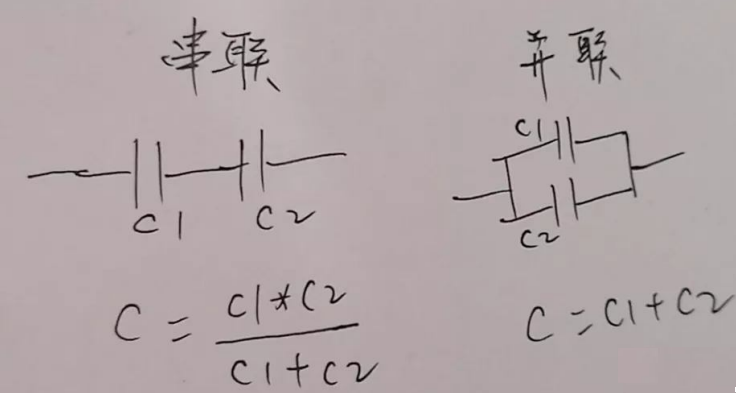 串联
C1 C2
C = C1*C2 / C1+C2
并联
C1
C2
C = C1+C2